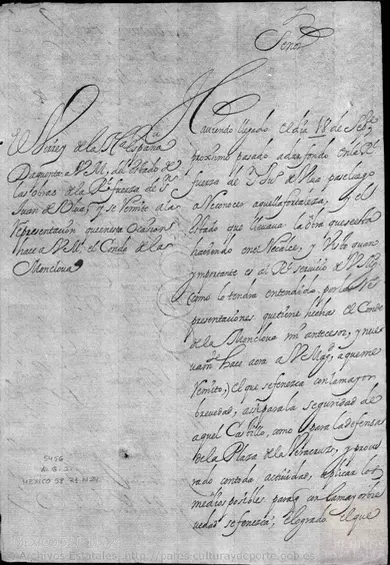 Señor
El Virrey de la Na España
Da quenta a V.M. del estado de
las obras de la Rl fuerza de Sn
Juan de Ulua, y se remite a la
representacion que en esta ocasion
hace a V.M. el Conde de la
Monclova
Haviendo llegado el dia 18 de Sepre
proximo pasado a dar fondo en la Rl
fuerza de Sn Juº de Ulua pase luego
a reconocer aquella fortaleza, y el
estado que llevava la obra que se esta
haciendo en el recaes, y Visto quan
importante es al Rl servicio de V.Mg
como lo tendra entendido por las re
presentaciones que tiene hechas el Conde
de la Monclova mi antecesor, y nue
vamte hace aora a V Magd, a que me
remito, el que se fenezca con la mayor
brevedad, asi para la seguridad de
aquel Castillo, como para la defensa
de la Plaza de la Veracruz, y procu
rado con toda actividad, aplicar los
medios posibles para q con la mayor bre
vedad se fenezca, El grado el que
5456
MEXICO
© Archivos Estatales, http://pares.culturaydeporte.gob.es